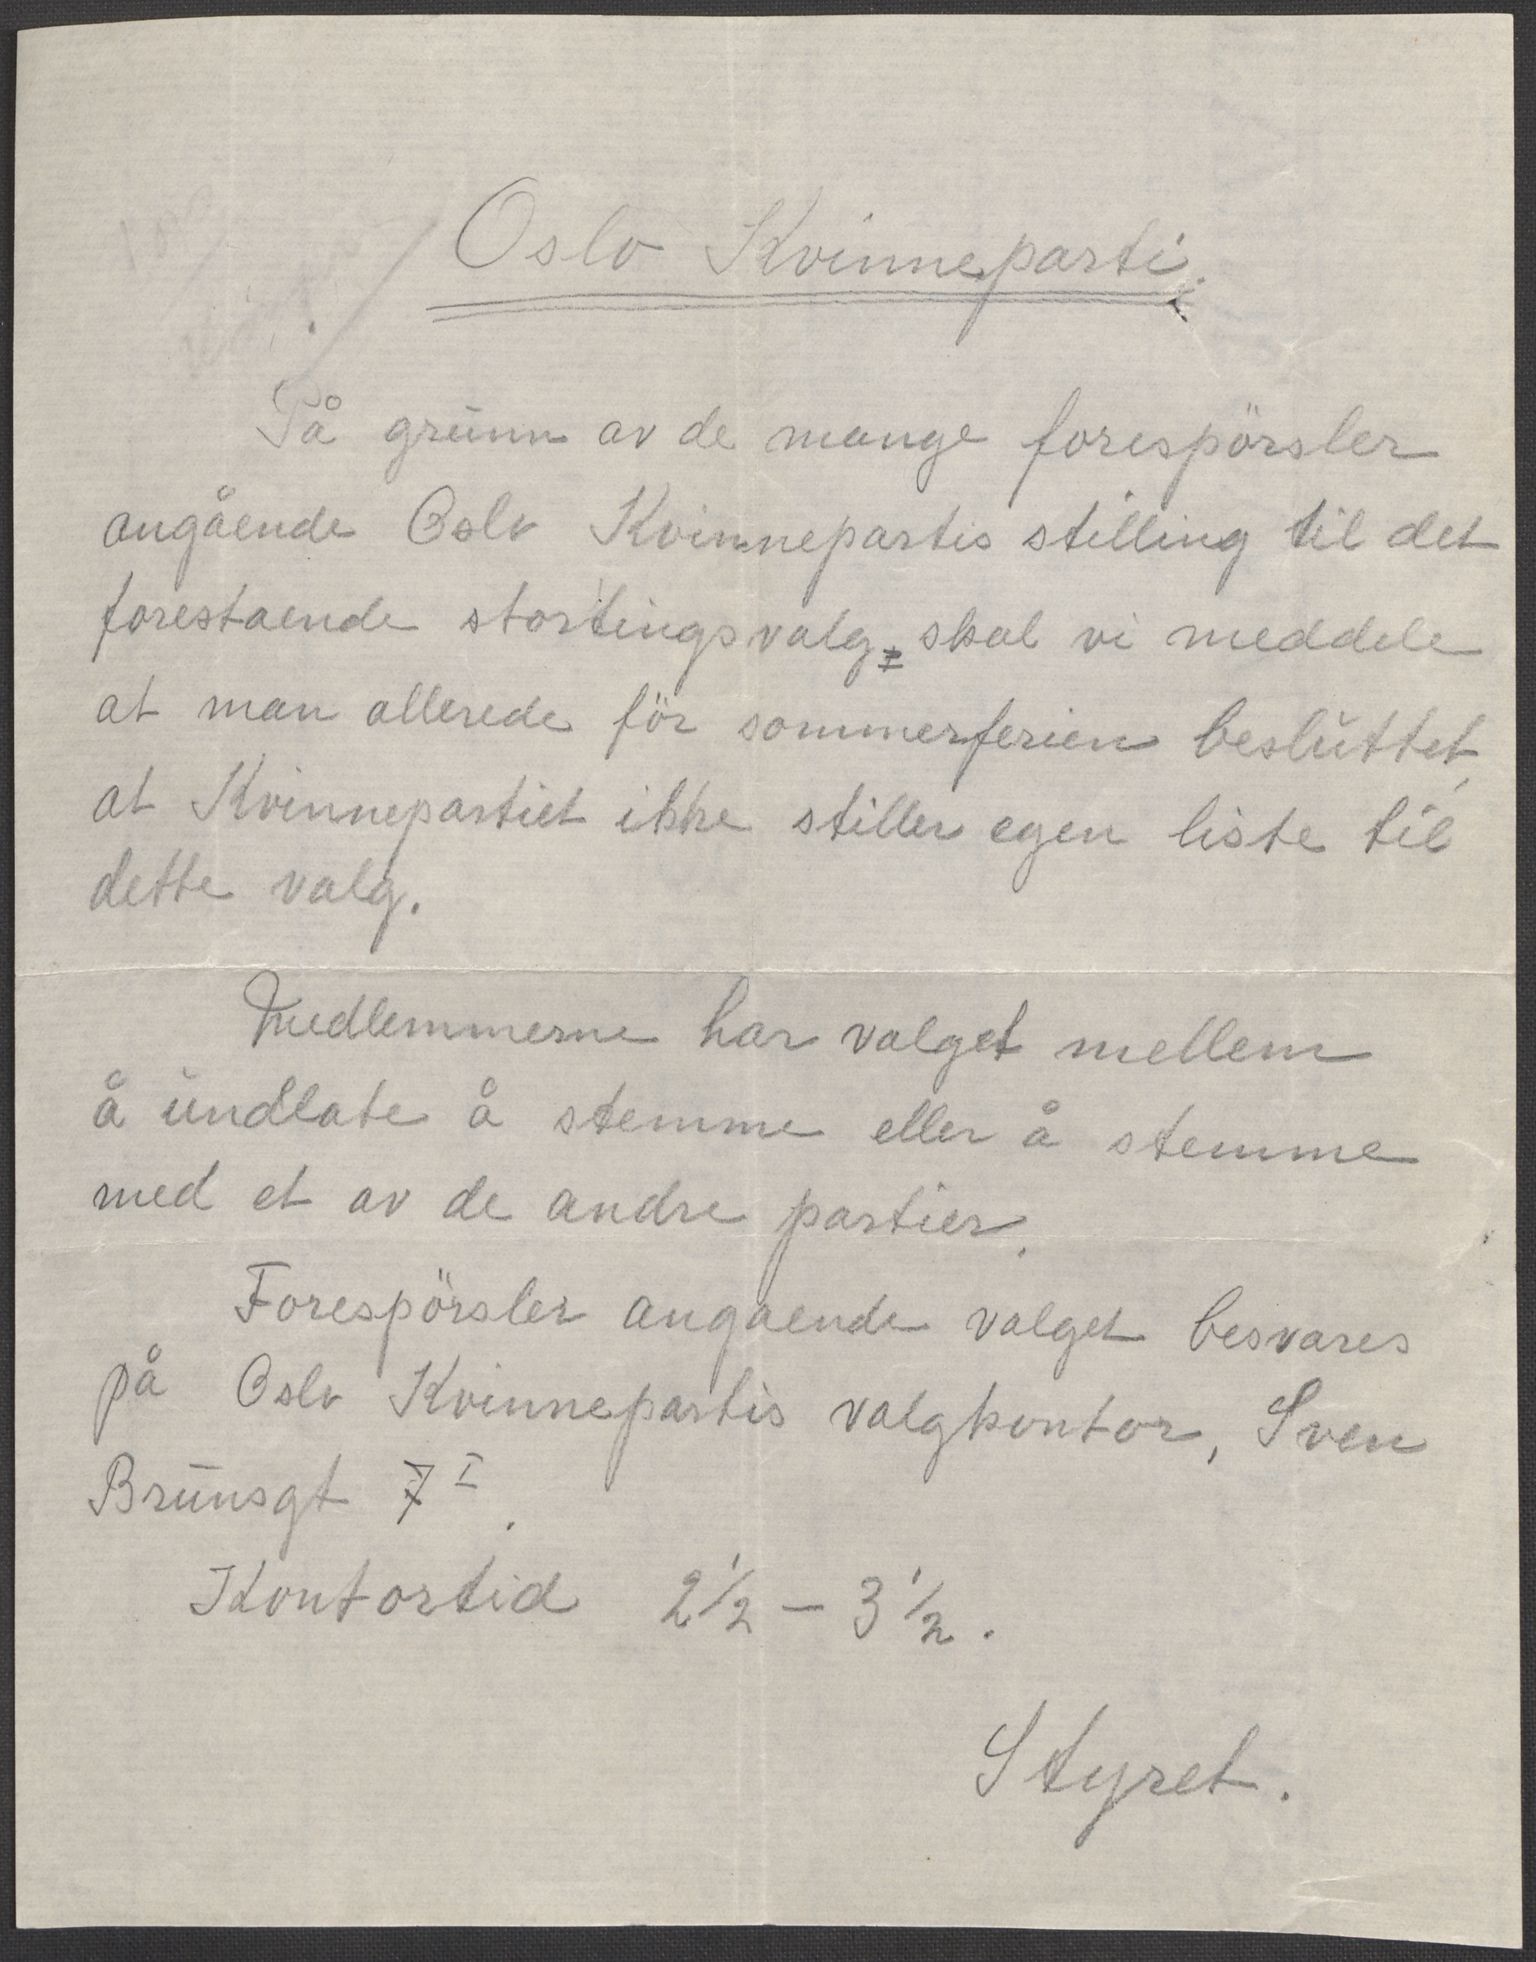 Oslo Kvinneparti.
På grunn av de mange forespörsler
angående Oslo Kvinnepartis stilling til det
forestaende stortingsvalg, skal vi meddele
at man allerede för sommerferien besluttet,
at Kvinnepartiet ikke stiller egen liste til
dette valg.
Medlemmerne har valget mellem
å undlate å stemme eller å stemme
med et av de andre partier.
Forespörsler angaende valget besvares
på Oslo Kvinnepartis valgkontor, Sven
Brunsgt 7 I.
Kontortid 2 1/2 - 3 1/2.
Styret.